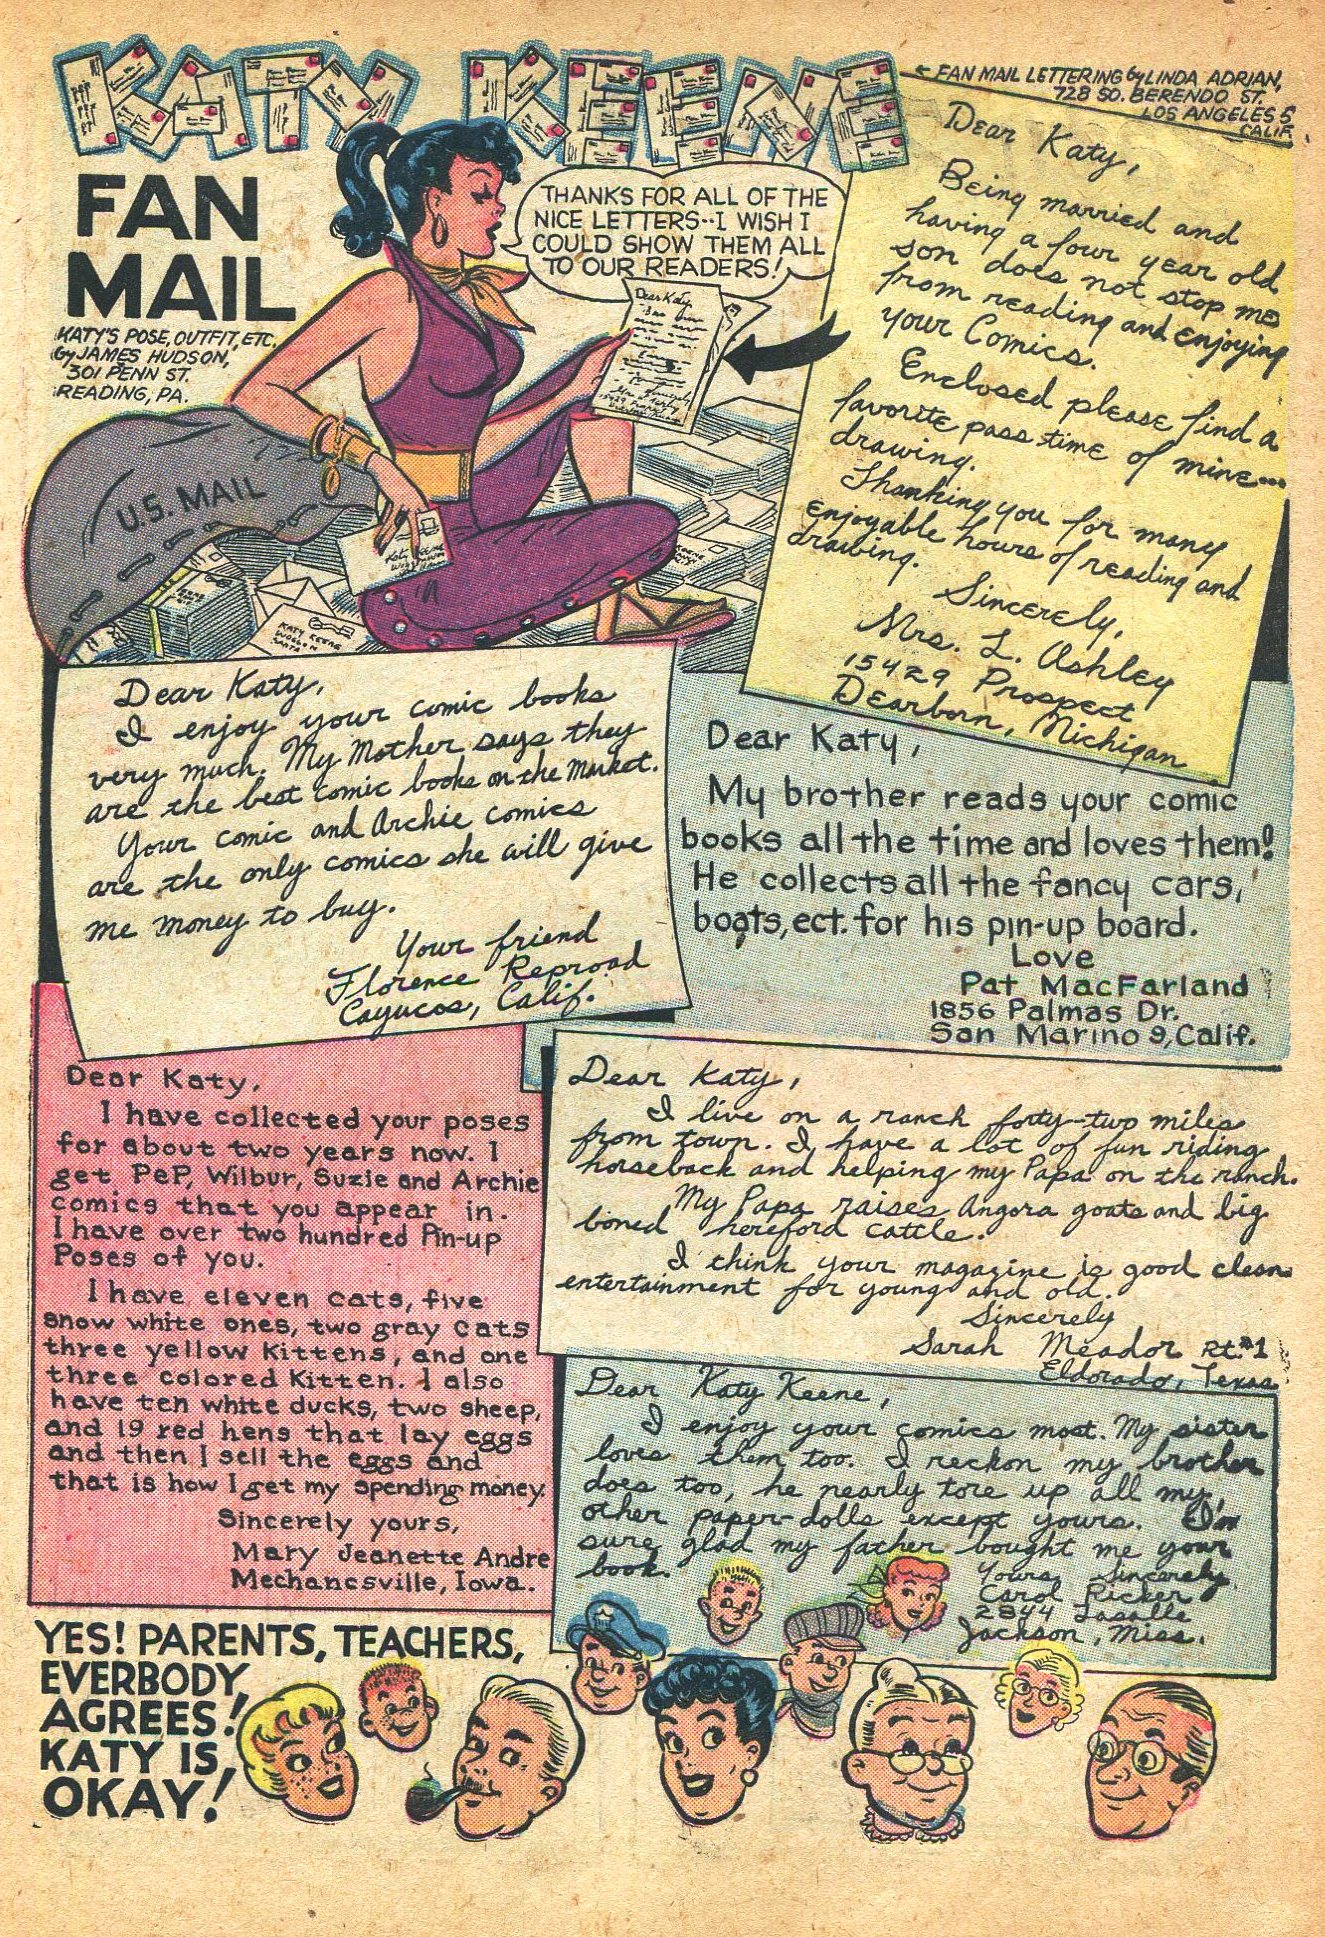 KATY KEENE
FAN
MAIL
KATY'S POSE, OUTFIT, ETC.
by JAMES HUDSON,
301 PENN ST.
READING, PA.
← FAN MAIL LETTERING by LINDA ADRIAN,
728 SO. BERENDO ST.
LOS ANGELES 5
CALIF.
THANKS FOR ALL OF THE
NICE LETTERS--I WISH I
COULD SHOW THEM ALL
TO OUR READERS!
Dear Katy
U.S. MAIL
KATY KEENE
Dear Katy,
Being married and
having a four year old
son does not stop me
from reading and enjoying
your Comics.
Enclosed please find a
favorite pass time of mine...
drawing.
Thanking you for many
enjoyable hours of reading and
drawing.
Sincerely,
Mrs. L. Ashley
15429 Prospect
Dearborn, Michigan
Dear Katy,
I enjoy your comic books
very much. My Mother says they
are the best comic books on the market.
Your comic and Archie comics
are the only comics she will give
me money to buy.
Your friend
Florence Reproad
Cayucos, Calif.
Dear Katy,
My brother reads your comic
books all the time and loves them!
He collects all the fancy cars,
boats, ect. for his pin-up board.
Love
Pat MacFarland
1856 Palmas Dr.
San Marino 9, Calif.
Dear Katy,
I have collected your poses
for about two years now. I
get PeP, Wilbur, Suzie and Archie
comics that you appear in.
I have over two hundred Pin-up
Poses of you.
I have eleven cats, five
snow white ones, two gray cats
three yellow kittens, and one
three colored kitten. I also
have ten white ducks, two sheep,
and 19 red hens that lay eggs
and then I sell the eggs and
that is how I get my spending money.
Sincerely yours,
Mary Jeanette Andre
Mechanesville, Iowa.
Dear Katy,
I live on a ranch forty-two miles
from town. I have a lot of fun riding
horseback and helping my Papa on the ranch.
My Papa raises Angora goats and big
boned hereford cattle.
I think your magazine is good clean
entertainment for young and old.
Sincerely
Sarah Meador Rt. #1
Eldorado, Texas
Dear Katy Keene,
I enjoy your comics most. My sister
loves them too. I reckon my brother
does too, he nearly tore up all my
other paper-dolls except yours. I'm
sure glad my father bought me your
book.
Yours Sincerely
Carol Ricker
2844 Lasalle
Jackson, Miss.
YES! PARENTS, TEACHERS,
EVERBODY
AGREES!
KATY IS
OKAY!